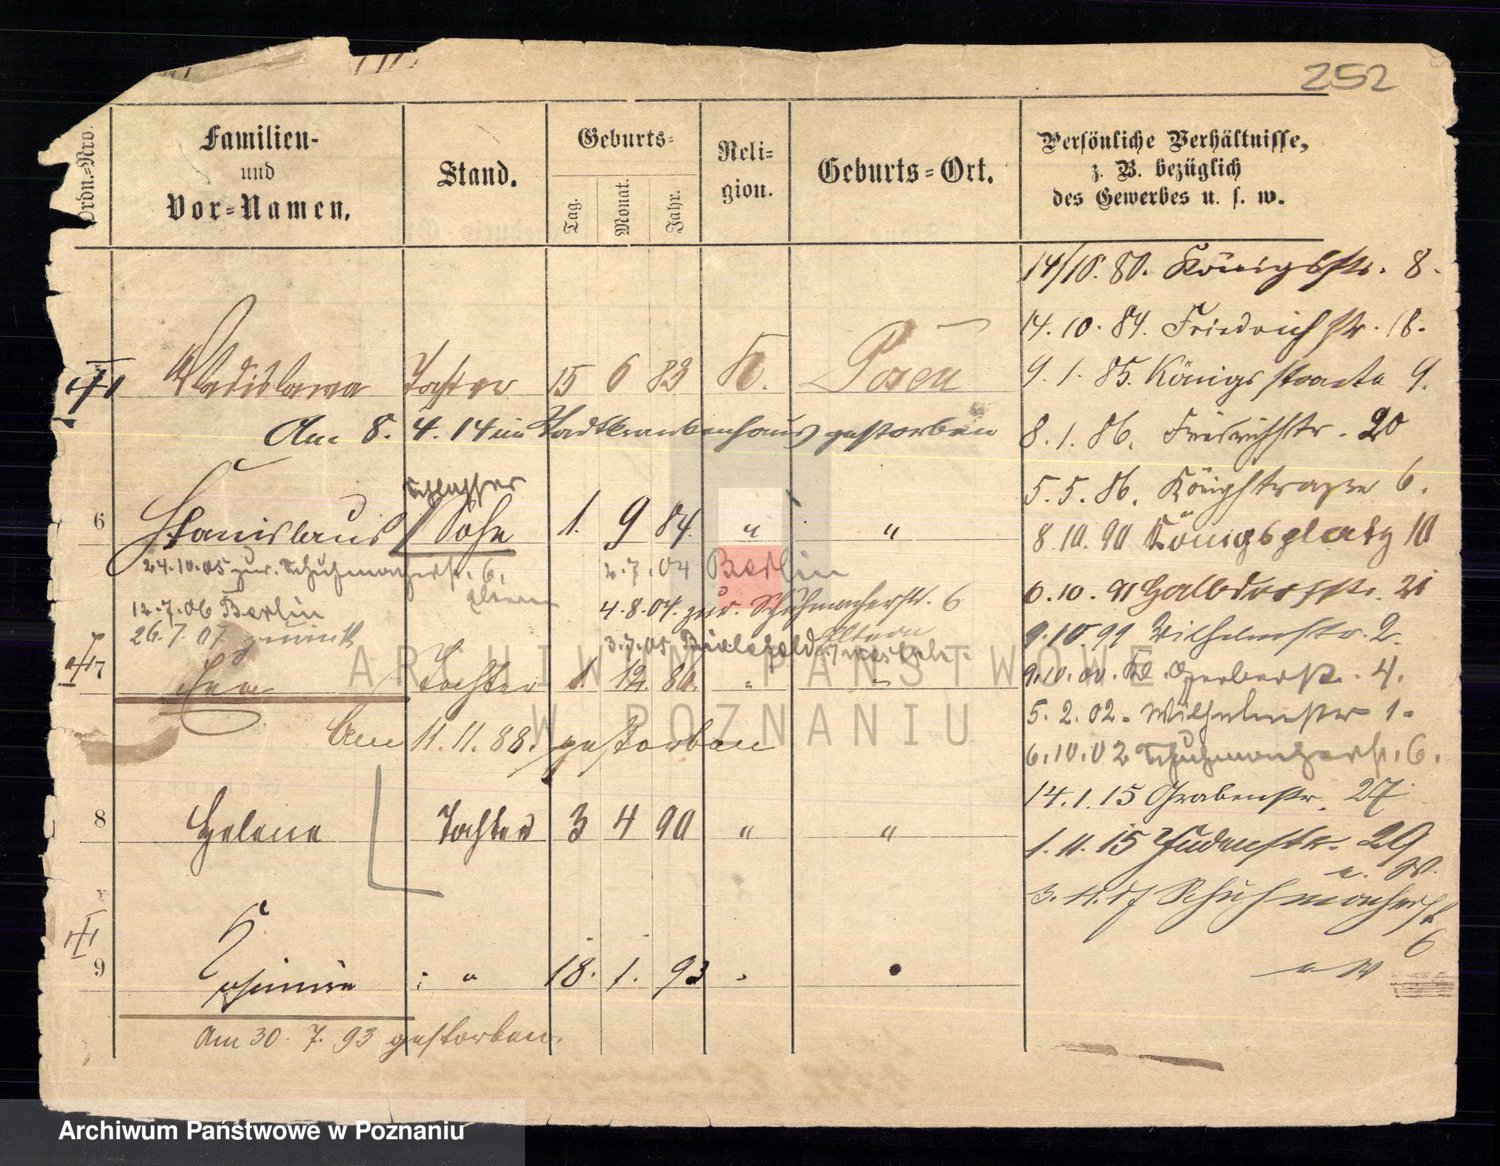 252
Ordn.-Nro.
Familien-
und
Vor-Namen.
Stand.
Geburts-
Tag.
Monat.
Jahr.
Reli-
gion.
Geburts-Ort.
Persönliche Verhältnisse,
z. B. bezüglich
des Gewerbes u. s. w.
14/10. 80. Königsstr. 8.
14. 10. 84. Friedrichstr. 18.
Wladislawa Tochter 15 6 83 K. Posen
9. 1. 85. Königsstraße 9.
Am 8. 4. 14 im Stadtkrankenhaus gestorben
8. 1. 86. Friedrichstr. 20
Schlosser
5. 5. 86. Königstraße 6.
6 Stanislaus Sohn 1. 9 84. " "
8. 10. 90 Königsplatz 10
24.10.05 zur. Schuhmacherstr. 6.
Eltern
2.7.04 Berlin
6. 10. 91 Halbdorfstr. 21
12.7.06 Berlin
4.8.04. zur. Schuhmacherstr. 6
Eltern
26.7.07 zurück
3.7.05 Bielefeld
9.10 99 Wilhelmstr. 2.
7 Tochter 1. 12. 86. " "
9.10.00. Kl. Gerberstr. 4.
Am 11. 11. 88. gestorben
5. 2. 02. Wilhelmstr 1.
6.10.02 Schuhmacherstr. 6.
14.1.15 Grabenstr. 27
8 Helene Tochter 3 4 90 " "
1. 11. 15 Judenstr. 29
3. 11. 17 Schuhmacherstr
6
9 18. 1. 93
Am 30. 7. 93 gestorben.
ARCHIWUM PAŃSTWOWE
W POZNANIU
Archiwum Państwowe w Poznaniu